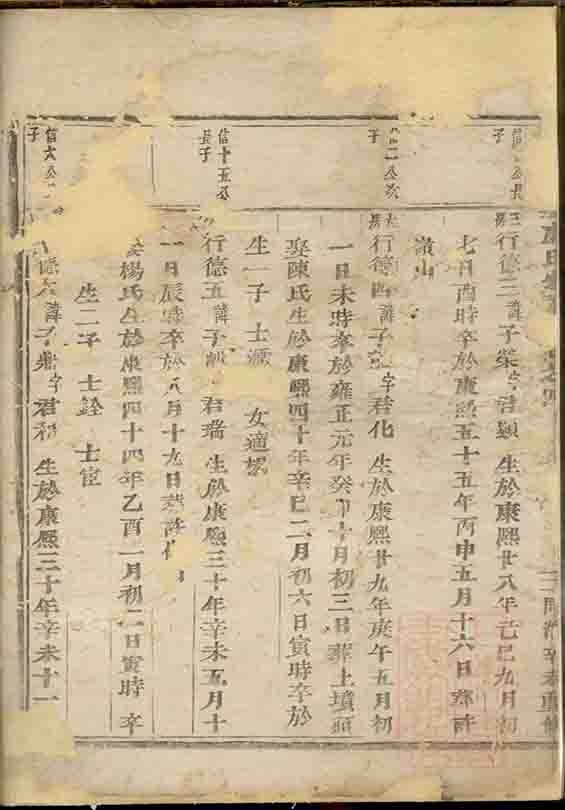 信 公長
子
三
房 行德三諱子榮字君顯 生於康熙廿八年己巳九月初
七日酉時卒於康熙五十五年丙申五月十六日葬許
嶺山
公次
子
大
房 行德四諱子 字君化 生於康熙廿九年庚午五月初
一日未時卒於雍正元年癸卯十月初三日葬上墳頭
娶陳氏生於康熙四十年辛巳二月初六日寅時卒於
生一子 士 女適楊
信十五公
長子
行德五諱子 君瑞 生於康熙三十年辛未五月十
一日辰時卒於 八月十九日葬許
娶楊氏生於康熙四十四年乙酉一月初二日寅時 卒
生二子 士銓 士宦
信六公
子
德六諱子鼎字君和 生於康熙三十年辛未十一